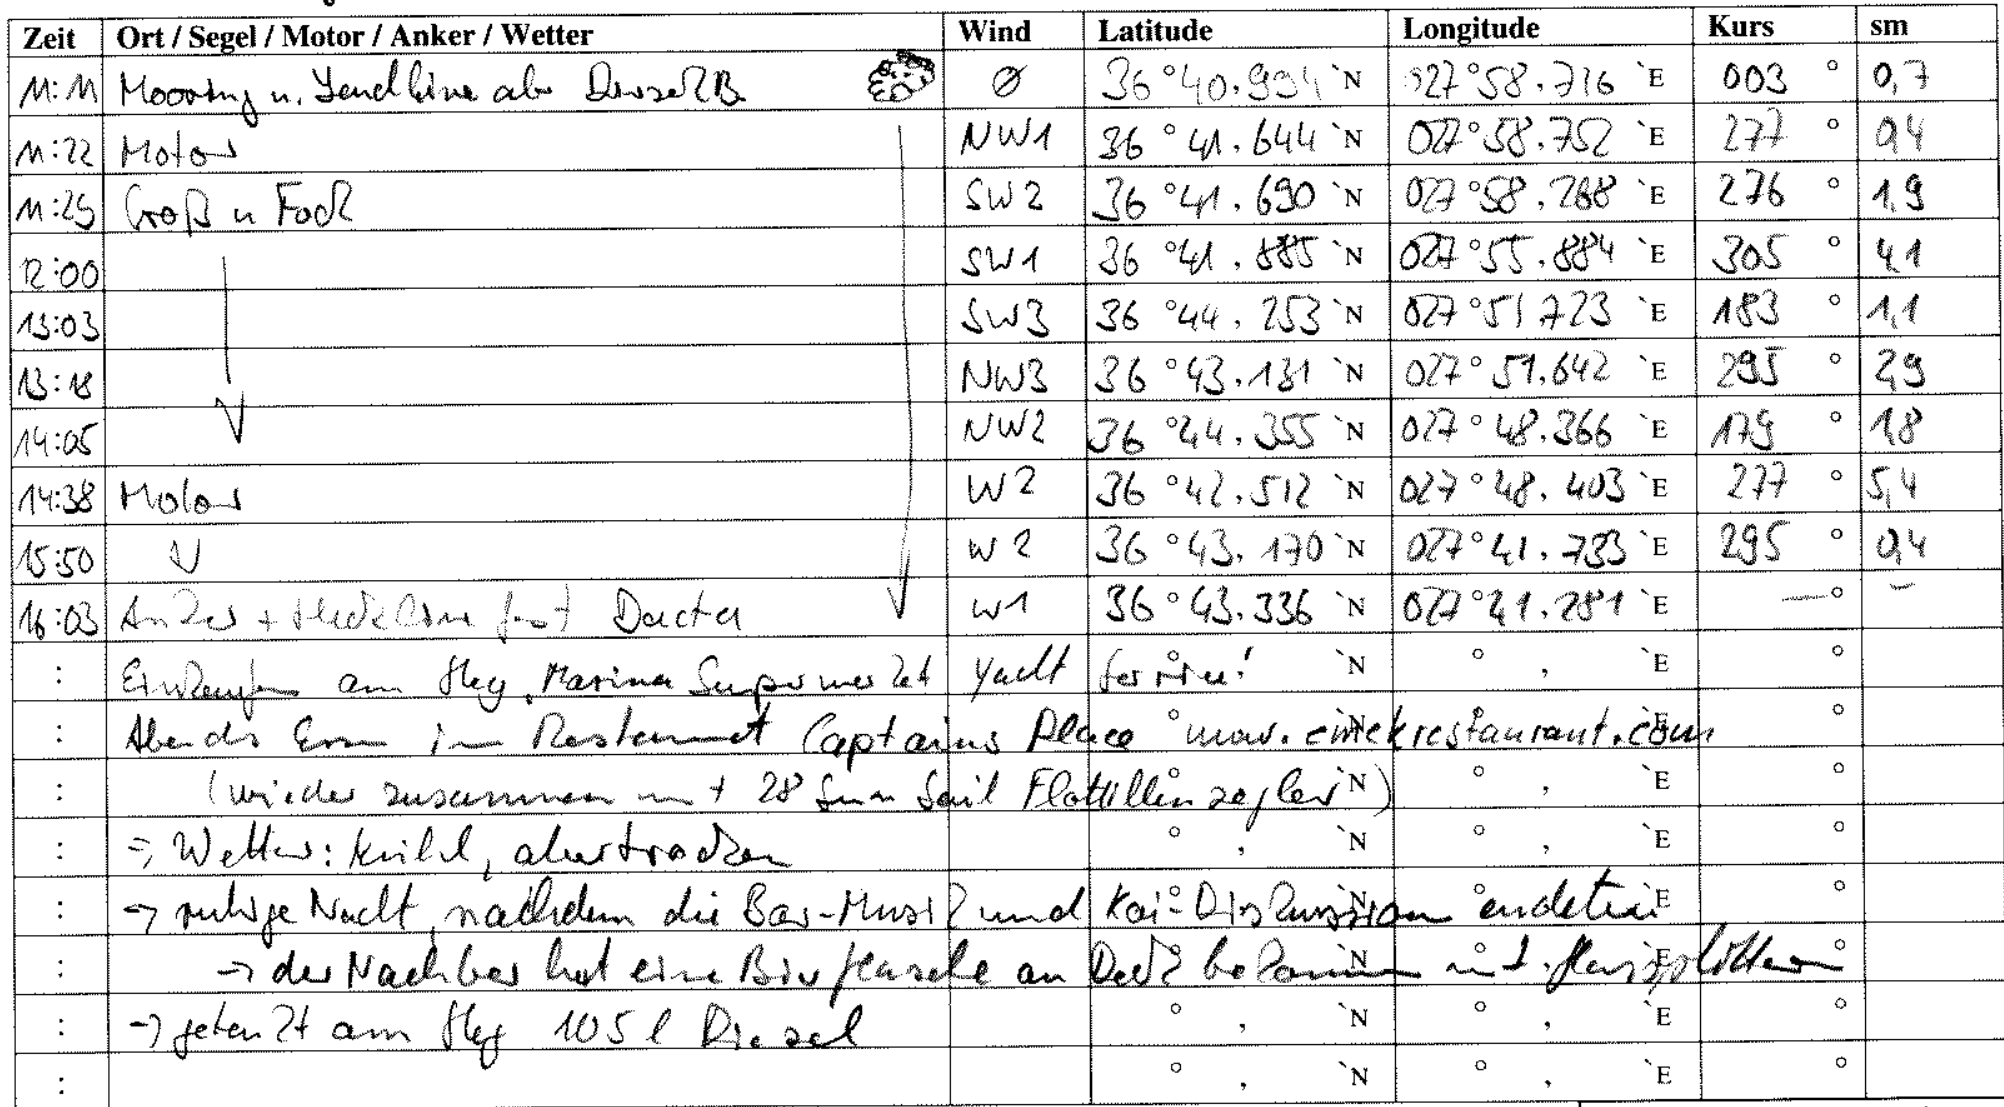 Zeit Ort / Segel / Motor / Anker / Wetter Wind Latitude Longitude Kurs sm
11:11 Mooring u. Landline ab Ø 36°40.994`N 027°58.716`E 003° 0,7
11:22 Motor NW1 36°41.644`N 027°58.752`E 277° 0,4
11:25 Groß u Fock SW2 36°41.690`N 027°58.288`E 276° 1,9
12:00 SW1 36°41.885`N 027°55.884`E 305° 4,1
13:03 SW3 36°44.253`N 027°51.723`E 183° 1,1
13:18 NW3 36°43.131`N 027°51.642`E 295° 2,9
14:05 NW2 36°44.355`N 027°48.366`E 179° 1,8
14:38 Motor W2 36°42.512`N 027°48.403`E 277° 5,4
15:50 W2 36°43.170`N 027°41.733`E 295° 0,4
16:03 Anker + fest Dacta W1 36°43.336`N 027°41.281`E —° –
: Einkaufen am Steg, Marina Supermarket Yacht Service! `N ° , `E °
: Abends Essen im Restaurant Captains Place www.cimekrestaurant.com
: (wieder zusammen mit 28 Sun Sail Flottillensegler)
: => Wetter: kühl, aber trocken
: -> ruhige Nacht, nachdem die Bar-Musik und Kai-Diskussion endete
: -> der Nachbar hat eine Bierflasche an Deck bekommen
: -> getankt am Steg 105 l Diesel
: ° , `N ° , `E °